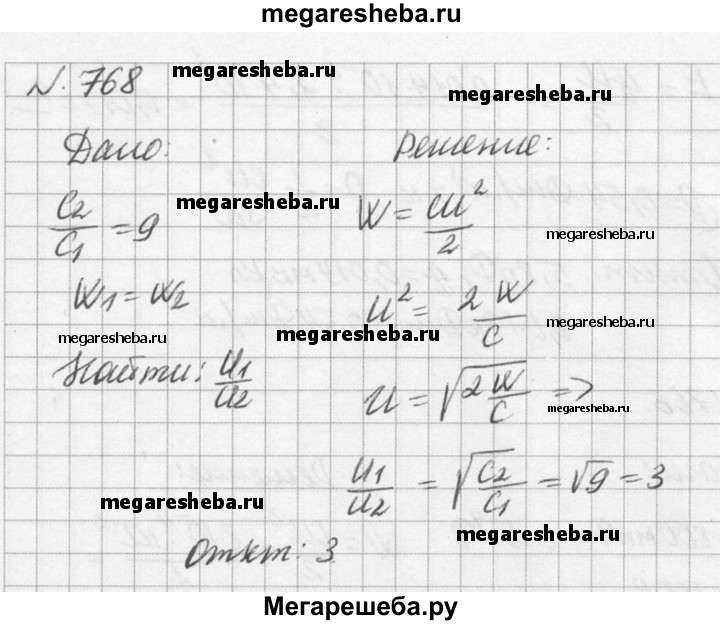 megaresheba.ru
N. 768
megaresheba.ru
megaresheba.ru
Дано:
Решение:
C₂/C₁ = 9
megaresheba.ru
W = CU²/2
megaresheba.ru
W₁ = W₂
U² = 2W/C
megaresheba.ru
megaresheba.ru
megaresheba.ru
Найти: U₁/U₂
U = √(2W/C) =>
megaresheba.ru
U₁/U₂ = √(C₂/C₁) = √9 = 3
megaresheba.ru
megaresheba.ru
Ответ: 3
Мегарешеба.ру